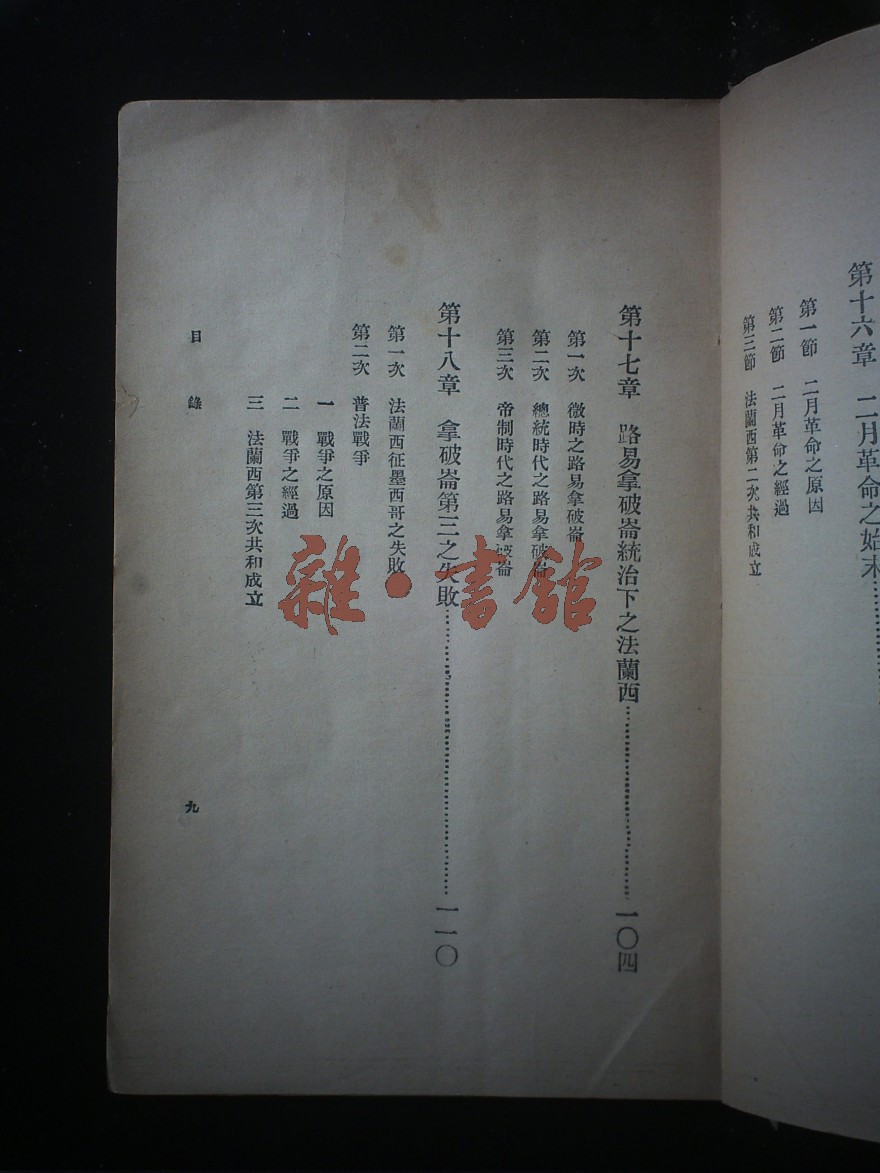 第十六章　二月革命之始末
第一節　二月革命之原因
第二節　二月革命之經過
第三節　法蘭西第二次共和成立
第十七章　路易拿破崙統治下之法蘭西 一〇四
第一次　微時之路易拿破崙
第二次　總統時代之路易拿破崙
第三次　帝制時代之路易拿破崙
第十八章　拿破崙第三之失敗 一一〇
第一次　法蘭西征墨西哥之失敗
第二次　普法戰爭
一　戰爭之原因
二　戰爭之經過
三　法蘭西第三次共和成立
目錄
九
雜·書館